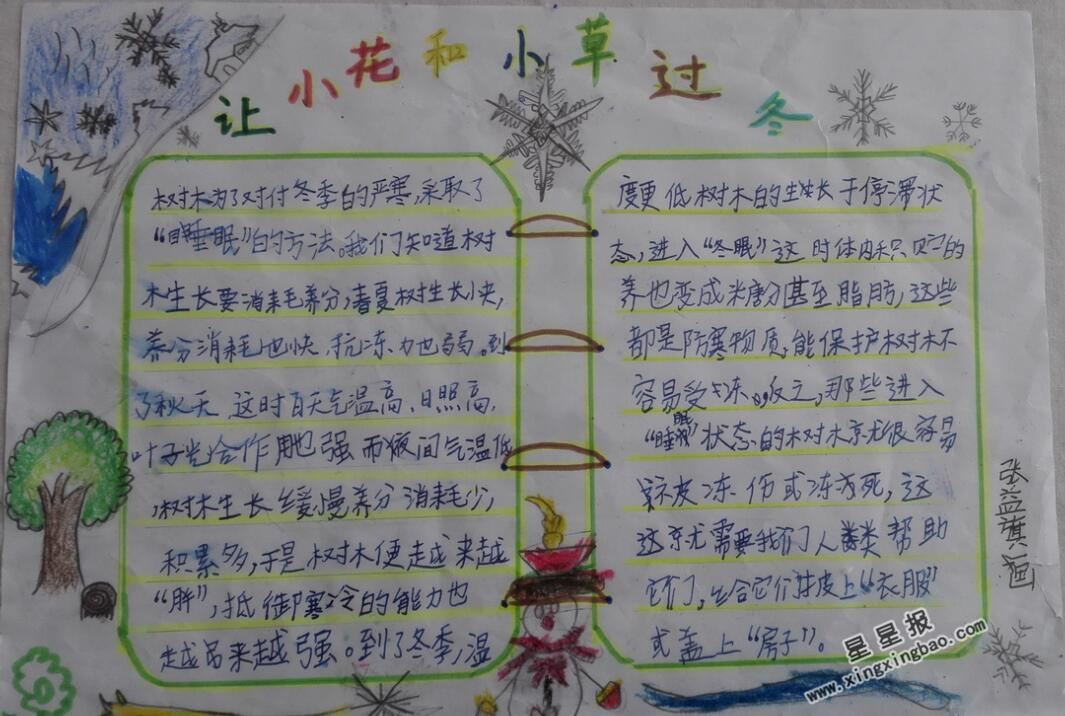 让小花和小草过冬
树木为了对付冬季的严寒,采取了
“睡眠”的方法。我们知道树
木生长要消耗养分,春夏树生长快,
养分消耗也快,抗冻力也弱。到
了秋天 这时白天气温高,日照高,
叶子光合作用也强 而夜间气温低
,树木生长缓慢养分消耗少,
积累多,于是树木便越来越
“胖”,抵御寒冷的能力也
越来越强。到了冬季,温
度更低树木的生长于停滞状
态,进入“冬眠”这时体内积贮的
养也变成米糖分甚至脂肪,这些
都是防寒物质,能保护树木不
容易受冻。反之,那些进入
“睡眠”状态的树木就很容易
被冻伤或冻死,这
这就需要我们人类帮助
它们,给它们披上“衣服”
或盖上“房子”。
张益旗画
星星报
www.xingxingbao.com